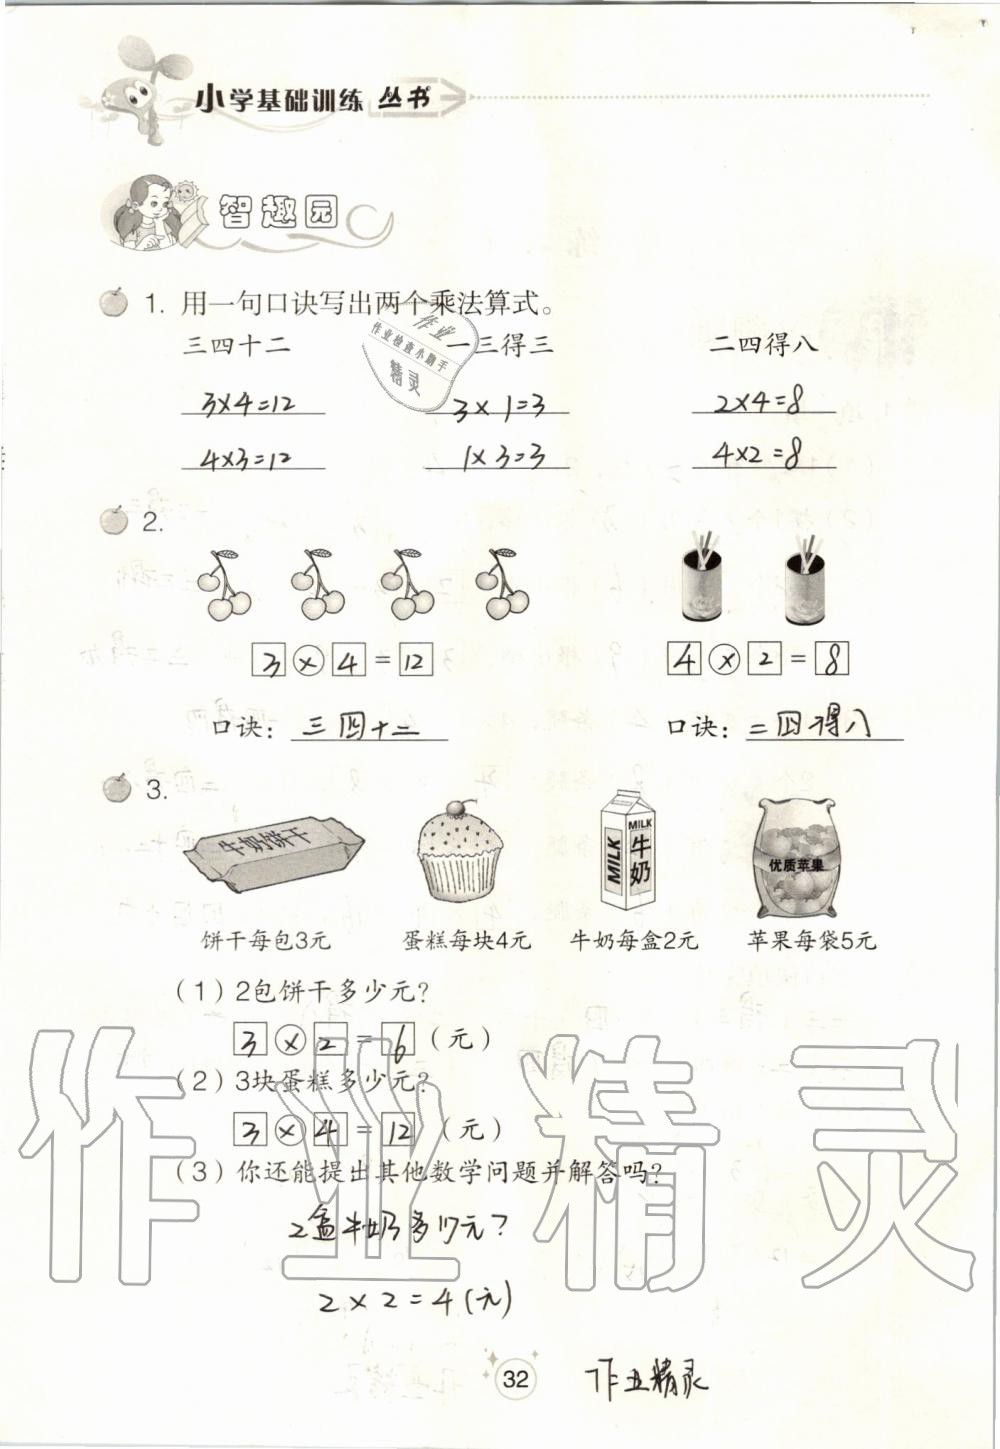 小学基础训练 丛书
智趣园
1. 用一句口诀写出两个乘法算式。
三四十二 一三得三 二四得八
3×4=12 3×1=3 2×4=8
4×3=12 1×3=3 4×2=8
2.
3×4=12 4×2=8
口诀：三四十二 口诀：二四得八
3.
牛奶饼干 MILK MILK 牛奶 优质苹果
饼干每包3元 蛋糕每块4元 牛奶每盒2元 苹果每袋5元
（1）2包饼干多少元？
3×2=6（元）
（2）3块蛋糕多少元？
3×4=12（元）
（3）你还能提出其他数学问题并解答吗？
2盒牛奶多少元？
2×2=4（元）
32
作业精灵
作业
作业检查小助手
精灵
作业精灵